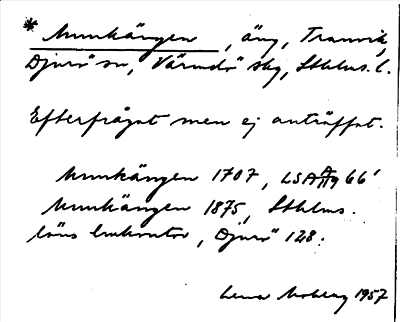 * Munkängen, äng, Tranvik,
Djurö sn, Värmdö skg, Sthlms. l.
Efterfrågat men ej anträffat.
Munkängen 1707, LSA A 119 66'
Munkängen 1875, Sthlms.
läns lmkontor, Djurö 128.
Lena Moberg 1957